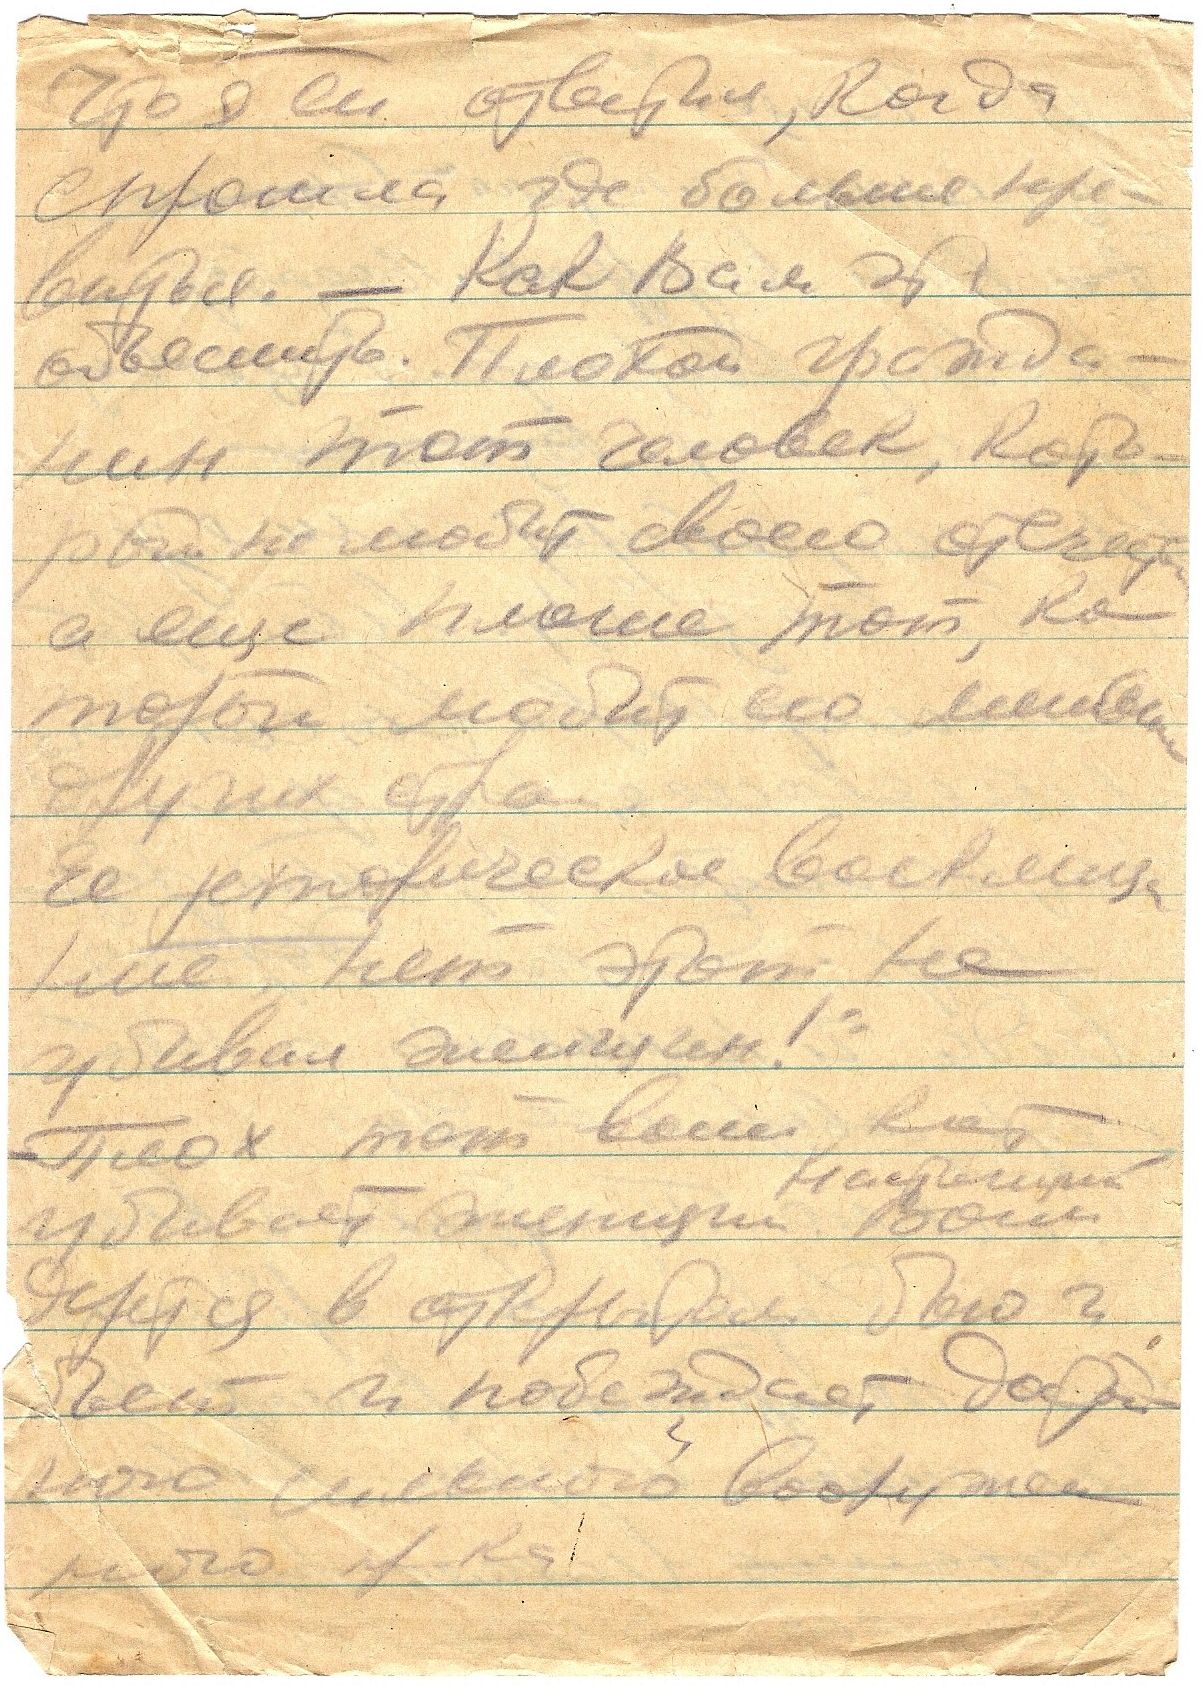 Что я ей ответил, когда
спросила где больше нра-
виться. – Как Вам это
объяснить. Плохой гражда-
нин тот человек, кото-
рый не любит своего отечества
а еще плоше тот, ко
торый любит его меньше
других стран.
Ее истерическое восклица
ние, нет этот не
убивал женщин!"
– Плох тот воин, кот
убивает женщин Настоящий
воин
дерется в открытом бою и
бьет и побеждает достой
ного сильного вооружен
ного